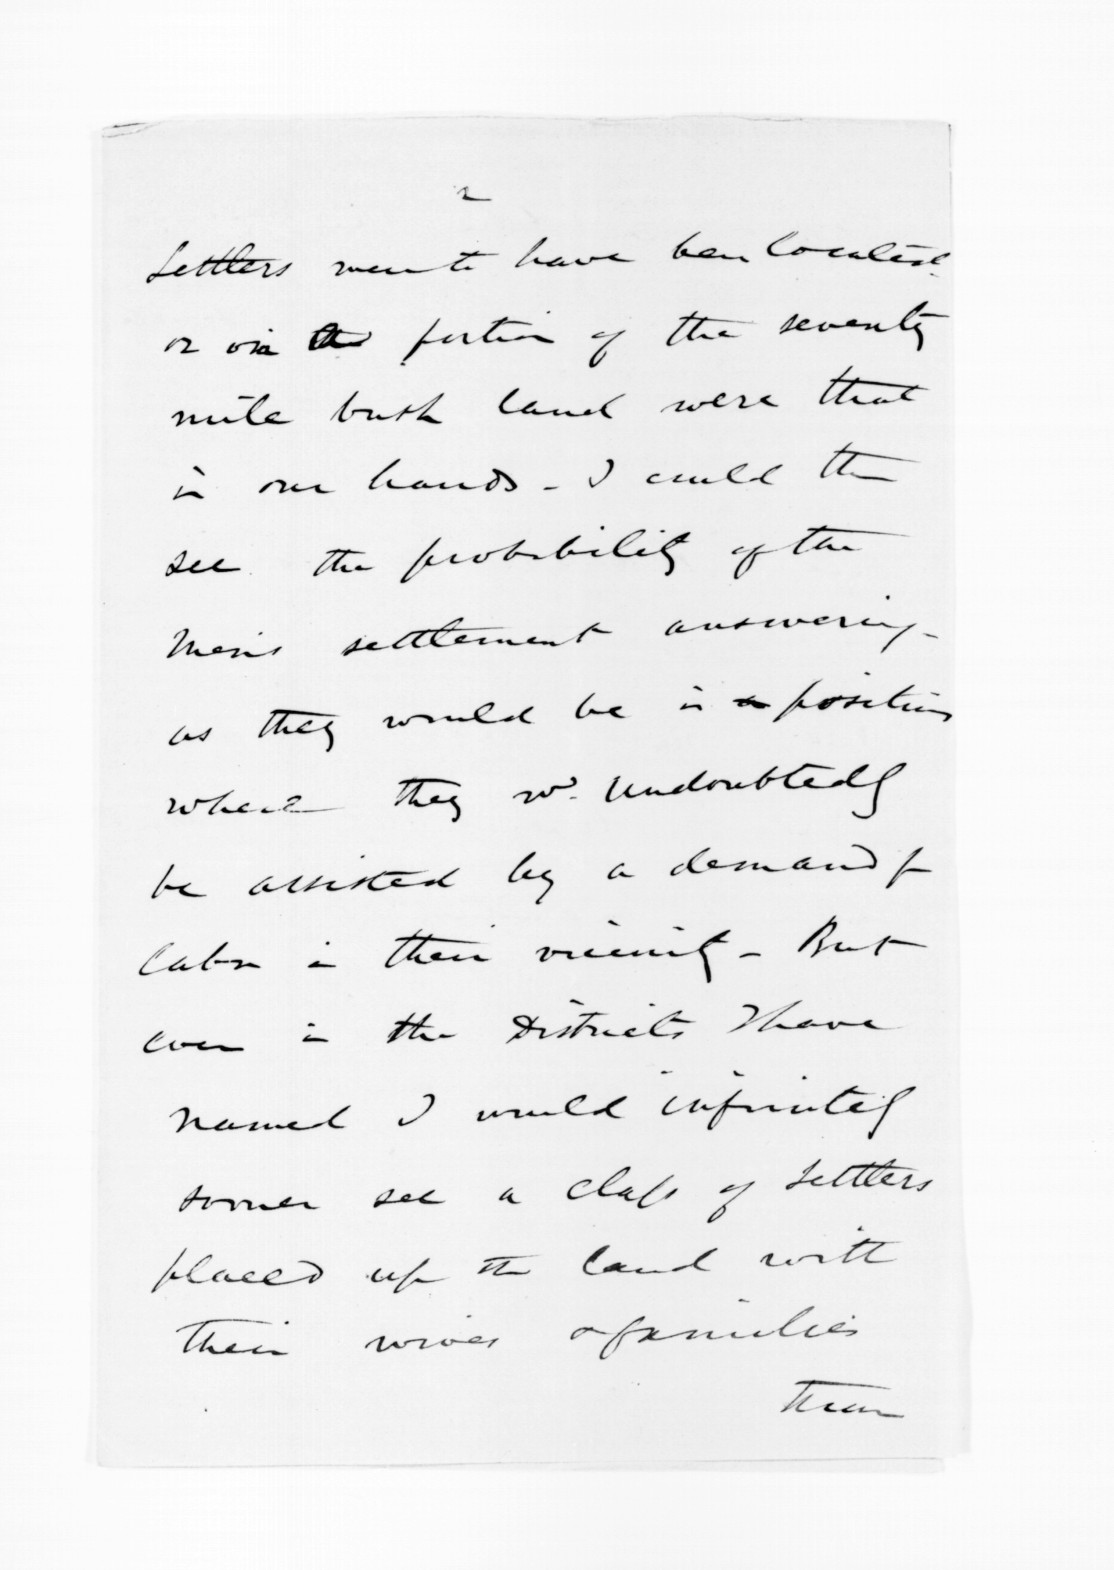 2
Settlers were to have been located
or on portion of the seventy
mile bush land were that
in our hands - I could then
see the probability of the
Men's settlement answering -
as they would be in a position
where they wd. undoubtedly
be assisted by a demand for
labor in their vicinity - But
even in the Districts I have
named I would infinitely
sooner see a class of Settlers
placed up the land with
their wives & families
than